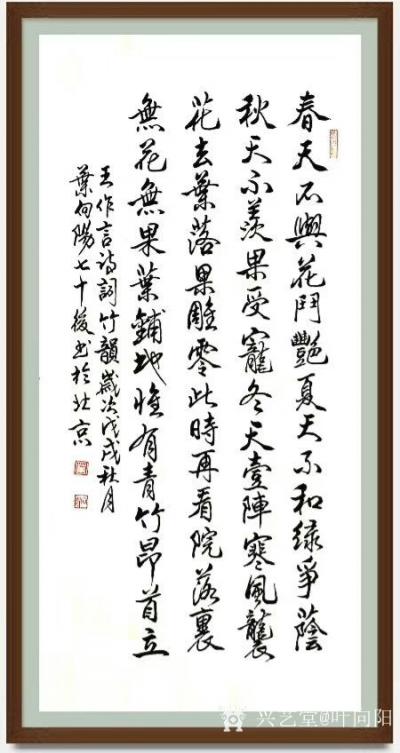 春天不與花鬥艷夏天不和绿爭蔭
秋天不羨果受寵冬天壹陣寒風襲
花去葉落果雕零此時再看院落裏
無花無果葉鋪地惟有青竹昂首立
王作言诗詞竹韻歲次戊戌秋月
葉向陽七十後书於北京
兴艺堂@叶向阳